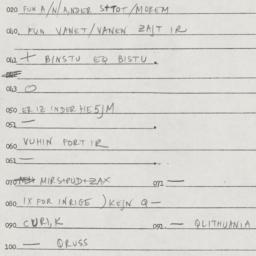 020 FUN A/N/ANDER S++OT/MOREM
040. FUN VANET/VANEN ZAJT IR
042 + BINSTU EQ BISTU.
043 O
050 ER IZ INDERHE5JM
051 —
060 VUHIN PORT IR
061 —
070 MIRS+PUD+ZAX 071 —
080 IX FOR INRIGE ) KEJN Q —
090 CURIK 091. — QLITHUANIA
100 — QRUSS